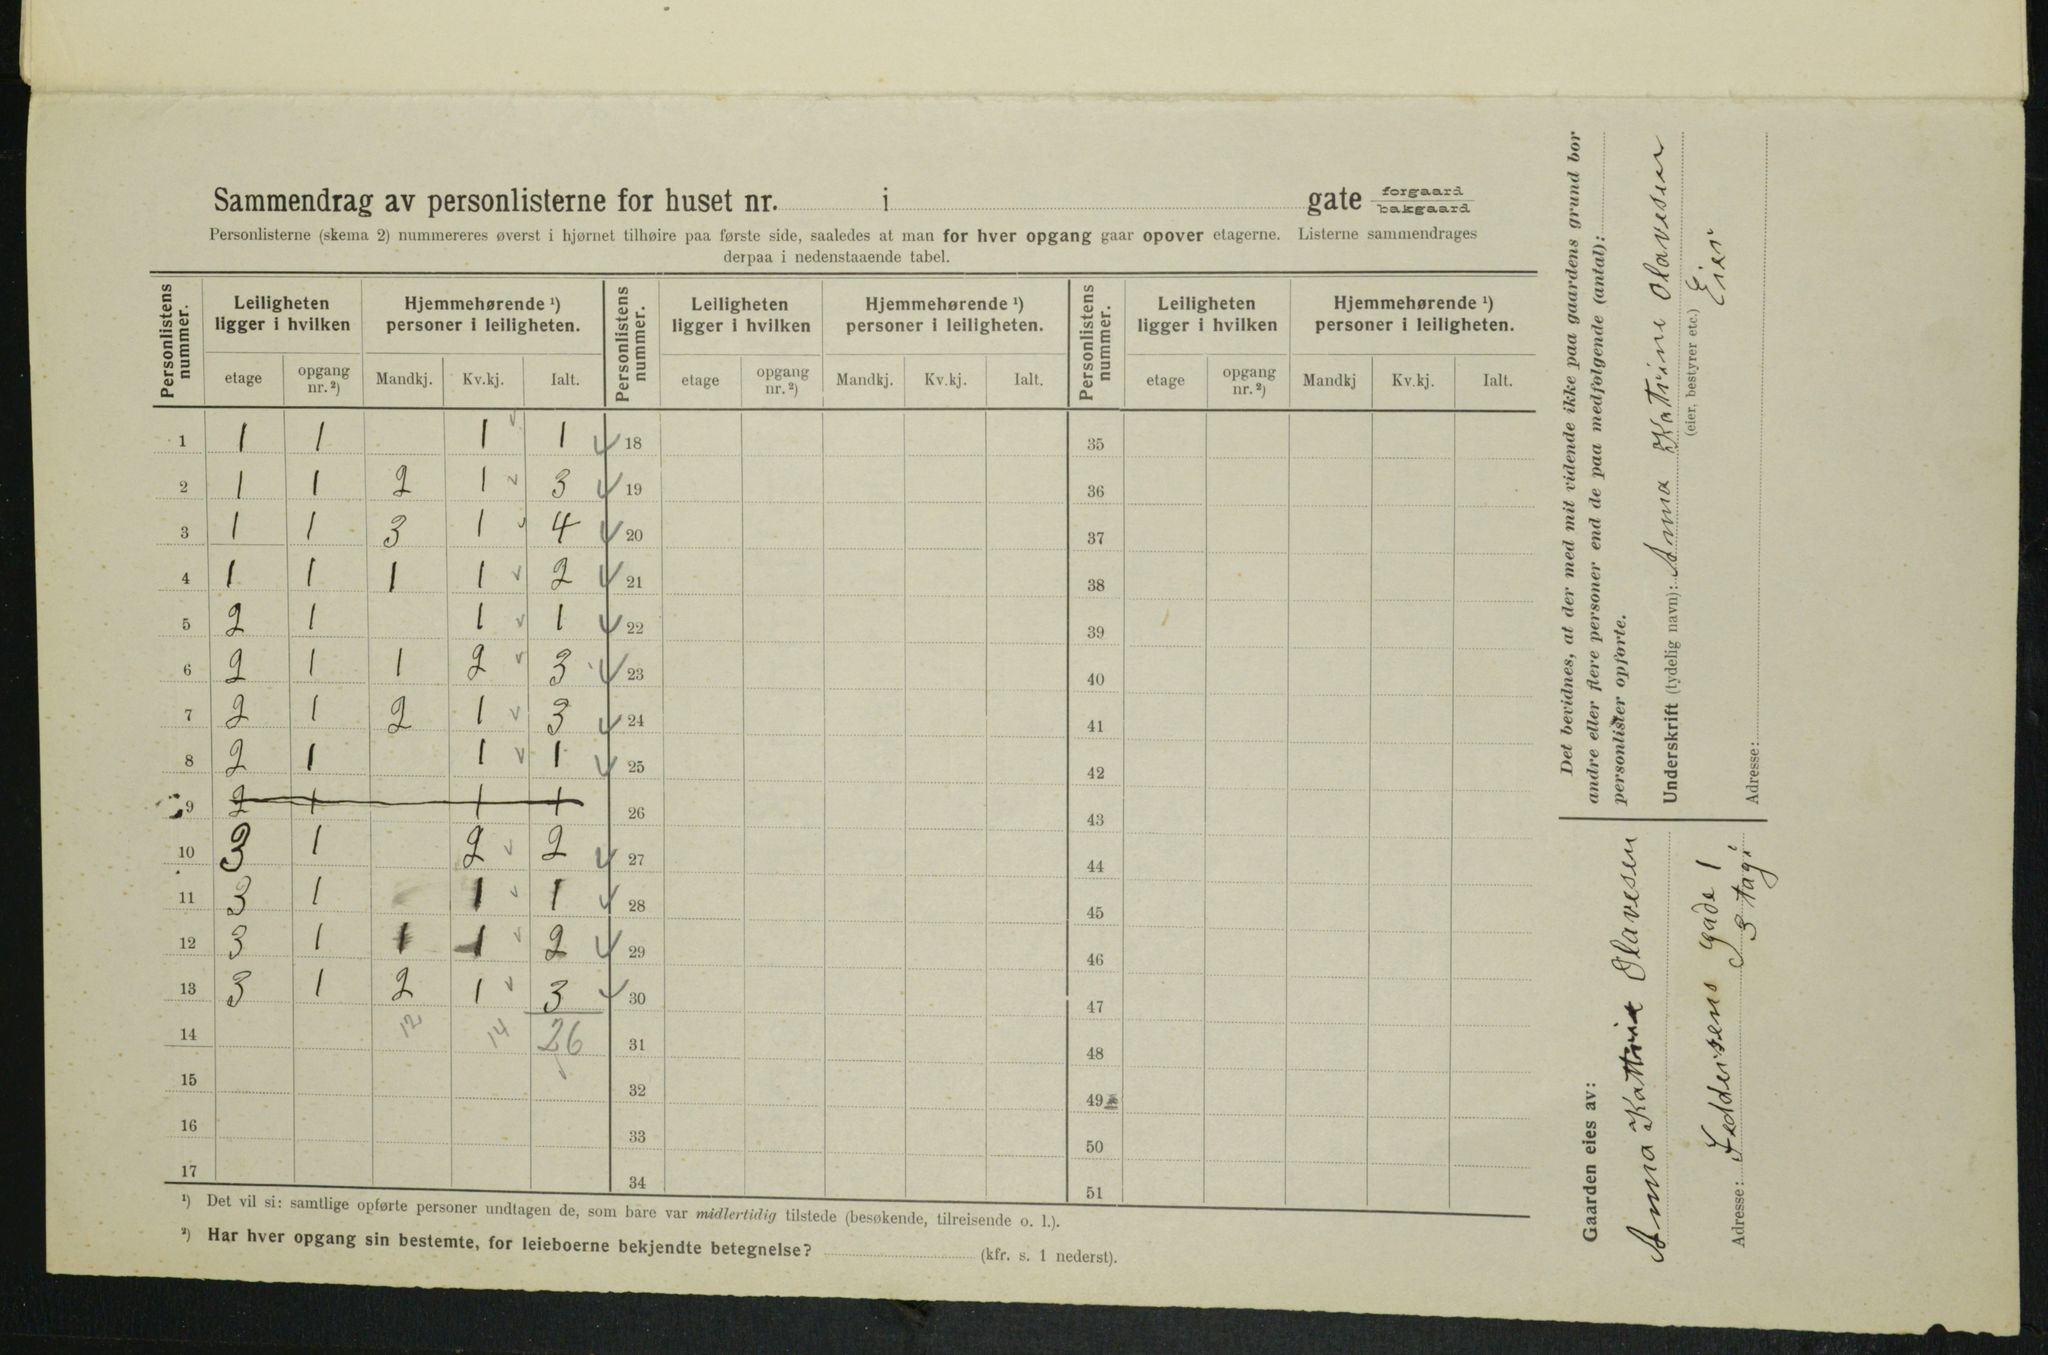 Sammendrag av personlisterne for huset nr. i gate forgaard bakgaard
Personlisterne (skema 2) nummereres øverst i hjørnet tilhøire paa første side, saaledes at man for hver opgang gaar opover etagerne. Listerne sammendrages
derpaa i nedenstaaende tabel.
Personlistens nummer. Leiligheten ligger i hvilken Hjemmehørende ¹) personer i leiligheten. Personlistens nummer. Leiligheten ligger i hvilken Hjemmehørende ¹) personer i leiligheten. Personlistens nummer. Leiligheten ligger i hvilken Hjemmehørende ¹) personer i leiligheten.
etage opgang nr. ²) Mandkj. Kv.kj. Ialt. etage opgang nr. ²) Mandkj. Kv.kj. Ialt. etage opgang nr. ²) Mandkj Kv.kj. Ialt.
1 1 1 1 1 18 35
2 1 1 2 1 3 19 36
3 1 1 3 1 4 20 37
4 1 1 1 1 2 21 38
5 2 1 1 1 22 39
6 2 1 1 2 3 23 40
7 2 1 2 1 3 24 41
8 2 1 1 1 25 42
9 2 1 1 1 26 43
10 3 1 2 2 27 44
11 3 1 1 1 28 45
12 3 1 1 1 2 29 46
13 3 1 2 1 3 30 47
14 12 14 26 31 48
15 32 49
16 33 50
17 34 51
¹) Det vil si: samtlige opførte personer undtagen de, som bare var midlertidig tilstede (besøkende, tilreisende o. l.).
²) Har hver opgang sin bestemte, for leieboerne bekjendte betegnelse? (kfr. s. 1 nederst).
Det bevidnes, at der med mit vidende ikke paa gaardens grund bor
andre eller flere personer end de paa medfølgende (antal):
personlister opførte.
Underskrift (tydelig navn): Anna Katrine Olavesen
(eier, bestyrer etc.) Eier
Adresse:
Gaarden eies av:
Anna Katrine Olavesen
Adresse: Feddersens gade 1
3 tagi